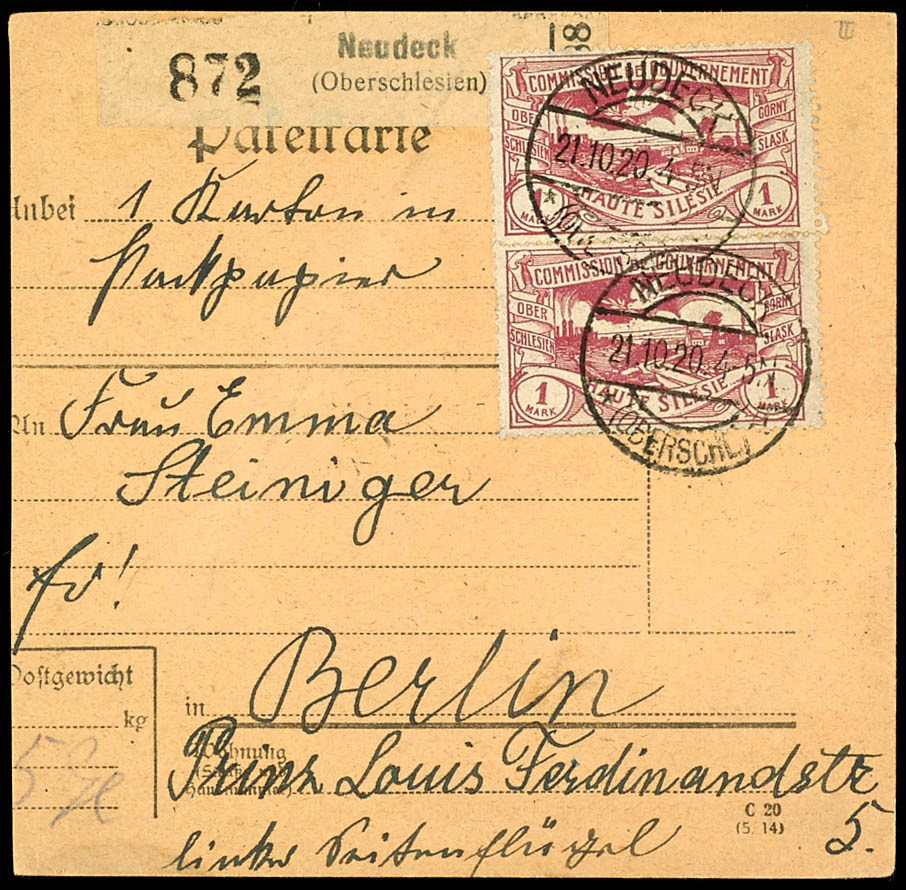 872
Neudeck
(Oberschlesien)
Paketkarte
Anbei 1 Karton in
Packpapier
COMMISSION DE GOUVERNEMENT
OBER SCHLESIEN
GORNY SLASK
HAUTE SILESIE
1 MARK
1 MARK
NEUDECK
21.10.20. 4-5N
COMMISSION DE GOUVERNEMENT
OBER SCHLESIEN
GORNY SLASK
HAUTE SILESIE
1 MARK
1 MARK
NEUDECK
21.10.20. 4-5N
(OBERSCHL.)
An Frau Emma
Steiniger
fr!
Postgewicht
kg
in Berlin
Wohnung
Prinz Louis Ferdinandstr
5.
C 20
(5. 14)
linker Seitenflügel